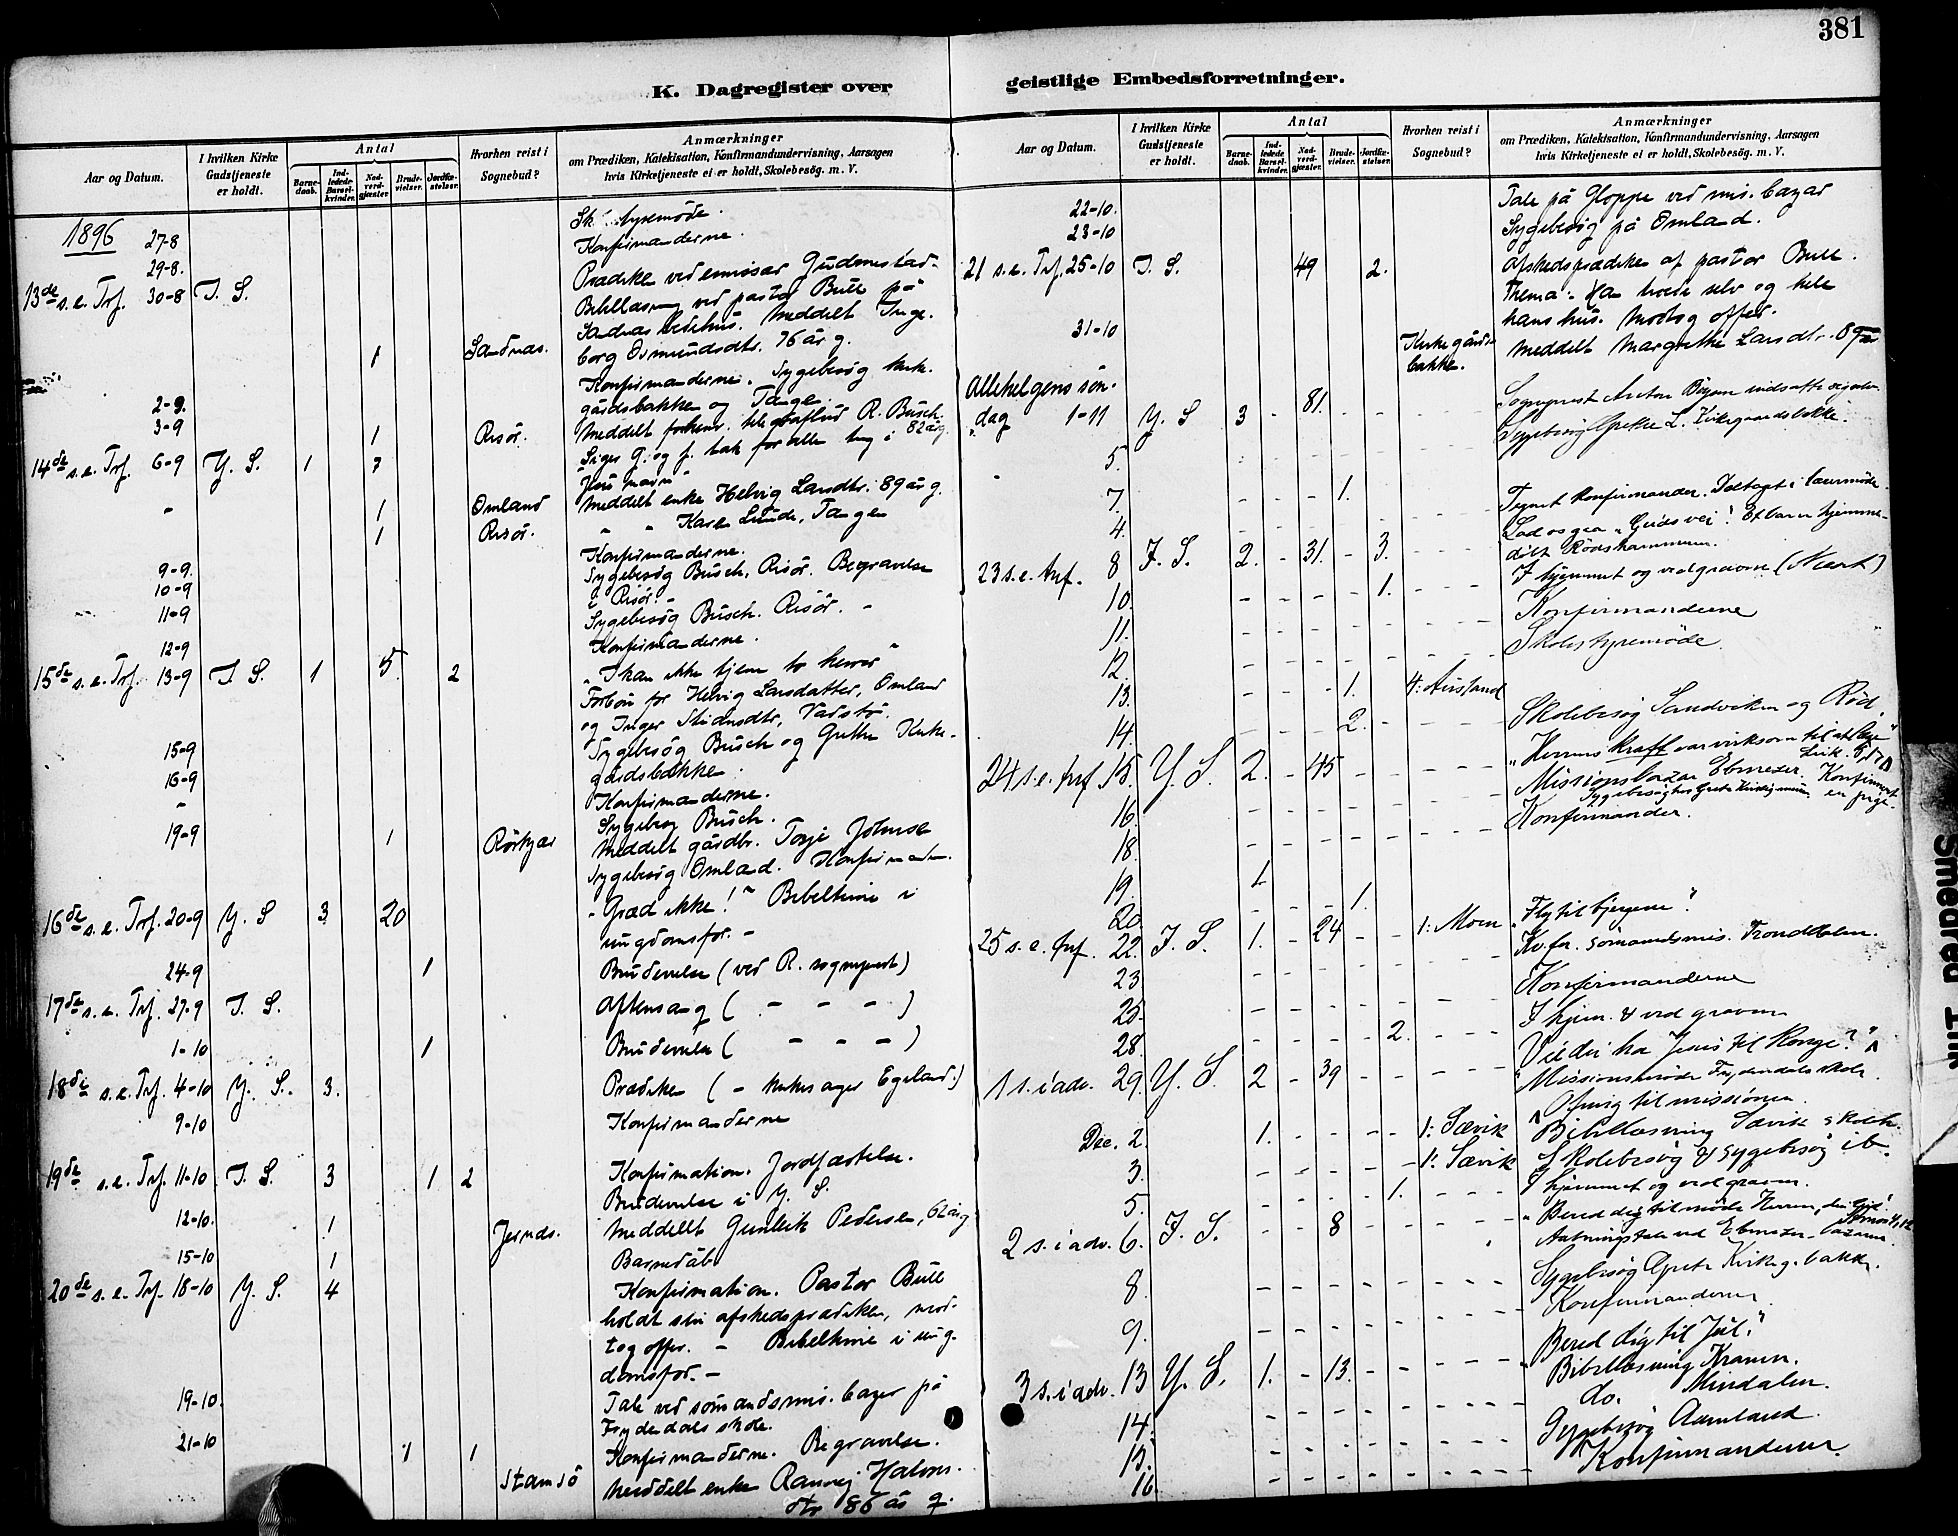 381
K. Dagregister over geistlige Embedsforretninger.
Aar og Datum.
I hvilken Kirke Gudstjeneste er holdt.
Antal
Barnedaab.
Indledede Barselkvinder.
Nadverdgjæster.
Brudevielser.
Jordfæstelser.
Hvorhen reist i Sognebud?
Anmærkninger
om Prædiken, Katekisation, Konfirmandundervisning, Aarsagen
hvis Kirketjeneste ei er holdt, Skolebesøg. m. V.
1896 27-8
29-8. Konfirmanderne.
13de s.e. Trf. 30-8 I. S. Prædiken ved emissær Gudmestad.
Bibellæsning ved pastor Bull på
Sandnæs bedehus. Meddelt Inge-
1 Sandnæs. borg Osmundsdtr. 76 år g.
Konfirmanderne. Sygebesøg Kirke-
2-9. gårdsbakken og Tangen.
3-9 1 Risör. Meddelt forhenv. telegrafbud R. Busch. 82 år g
14de s.e. Trf. 6-9 Y. S. 1 7 Siger G. og f. tak for alle ting i
Jesu navn
" 1 Omland Meddelt enke Helvig Larsdtr. 89 år g.
1 Risör. " " Karen Lunde, Tangen
9-9. Konfirmanderne.
10-9 Sygebesøg Busch, Risör. Begravelse
i Risör. -
11-9 Sygebesøg Busch. Risör. -
12-9 Konfirmanderne.
15de s.e. Trf. 13-9 I. S. 1 5. 2 "I kan ikke tjene to herrer"
Forbön for Helvig Larsdatter, Omland
og Inger
15-9 Sygebesøg Busch og Grethe Kirke-
gårdsbakken
16-9 Konfirmanderne.
" Sygebesøg Busch.
19-9 1 Rörkjær Meddelt gårdbr. Torje Johnsen
Sygebesøg Omland. Konfirmanden.
16de s.e. Trf. 20-9 Y. S 3 20 "Græd ikke!" Bibeltime i
ungdomsfor. -
24-9 1 Brudevielse (ved R. sogneprest)
17de s.e. Trf. 27-9 I. S. Aftensang ( - - - )
1-10 1 Brudevielse ( - - - )
18de s.e. Trf. 4-10 Y. S. 3. Prædiken ( - kirkesanger Egeland.)
9-10 Konfirmanderne
19de s.e. Trf. 11-10 I. S. 3 1 2 Konfirmation. Jordfæstelse.
Brudevielse i Y. S.
12-10. 1 Jernæs. Meddelt Gunleik Pedersen, 62 år g
15-10 1 Barnedåb
20de s.e. Trf. 18-10 Y. S. 4 Konfirmation. Pastor Bull
holdt sin afskedsprædiken, mod-
tog offer. - Bibeltime i ung-
domsfor. -
19-10. Tale ved sömandsmis. bazar på
Frydendals skole.
21-10 1 1 Konfirmanderne. Begravelse.
Stamsö Meddelt enke Raanvei Halvors-
dtr 86 år g.
Aar og Datum.
I hvilken Kirke Gudstjeneste er holdt.
Antal
Barnedaab.
Indledede Barselkvinder.
Nadverdgjæster.
Brudevielser.
Jordfæstelser.
Hvorhen reist i Sognebud?
Anmærkninger
om Prædiken, Katekisation, Konfirmandundervisning, Aarsagen
hvis Kirketjeneste ei er holdt, Skolebesøg. m. V.
22-10. Tale på Gloppe ved mis. bazar
23-10 Sygebesøg på Omland.
21 s.e. Trf. 25-10 I. S. 49 2. Afskedsprædiken af pastor Bull.
Thema: Han troede selv og hele
hans hus. Modtog offer.
31-10 Kirkegårds- bakken. Meddelt Margrethe Larsdtr.
Allehelgens søn-
dag 1-11 Y. S 3 - 81. Sogneprest Anton
5. Sygebesøg Grethe L. Kirkegaardsbakke.
7. - - - 1.
4. Tegnet konfirmander. Deltaget i lærermøde
23 s.e. Trf. 8 I. S. 2. - 31. - 3. Lad os gaa "Guds vei"! Et barn hjemme-
døbt Rødshammeren.
10. - - - - 1. I hjemmet og ved graven
11. Konfirmanderne
12. Skolestyremøde.
13. - - - 1. 4: Auslund
14. 2. Skolebesøg Sandviken og Rød.
24 s.e. Trf 15. Y. S. 2. - 45 "Herrens Kraft var virksom til at læge"
16. Missionsbazar Ebenezer. Konfirmant
18. Konfirmander.
19. 1
20. - - - 1.
25 s.e. Trf. 22. I. S. 1. - 24 - - 1: Moen "Fly til bjergene".
23 Kv.for. sømandsmis. Trondalen.
25. Konfirmanderne
28. - - - - 2. I hjem. & ved graven
1 s. i adv. 29. Y. S. 2 - 39 Vil du ha Jesus til Konge?"
Missionsmøde Frydendals skole.
Ofring til missionen.
Dec. 2. 1. - - - - 1: Sævik Bibellæsning Sævik skole.
3. 1: Sævik Skolebesøg & Sygebesøg ib.
5. - - - - 1. I hjemmet og ved graven.
2 s. i adv. 6. I. S. - - 8 "Bered dig til møde Herren, din Gud! Amos 4, 12
Aabningstale ved Ebenezer-bazaren.
8. Sygebesøg Grete Kirkeg. bakke.
9. Konfirmanderne
3 s. i adv. 13 Y. S. 1. - 13. "Bered dig til Jul."
14. Bibellæsning
do. Mindalen.
15. Sygebesøg Aamland.
16. Konfirmanderne.
Smedrød